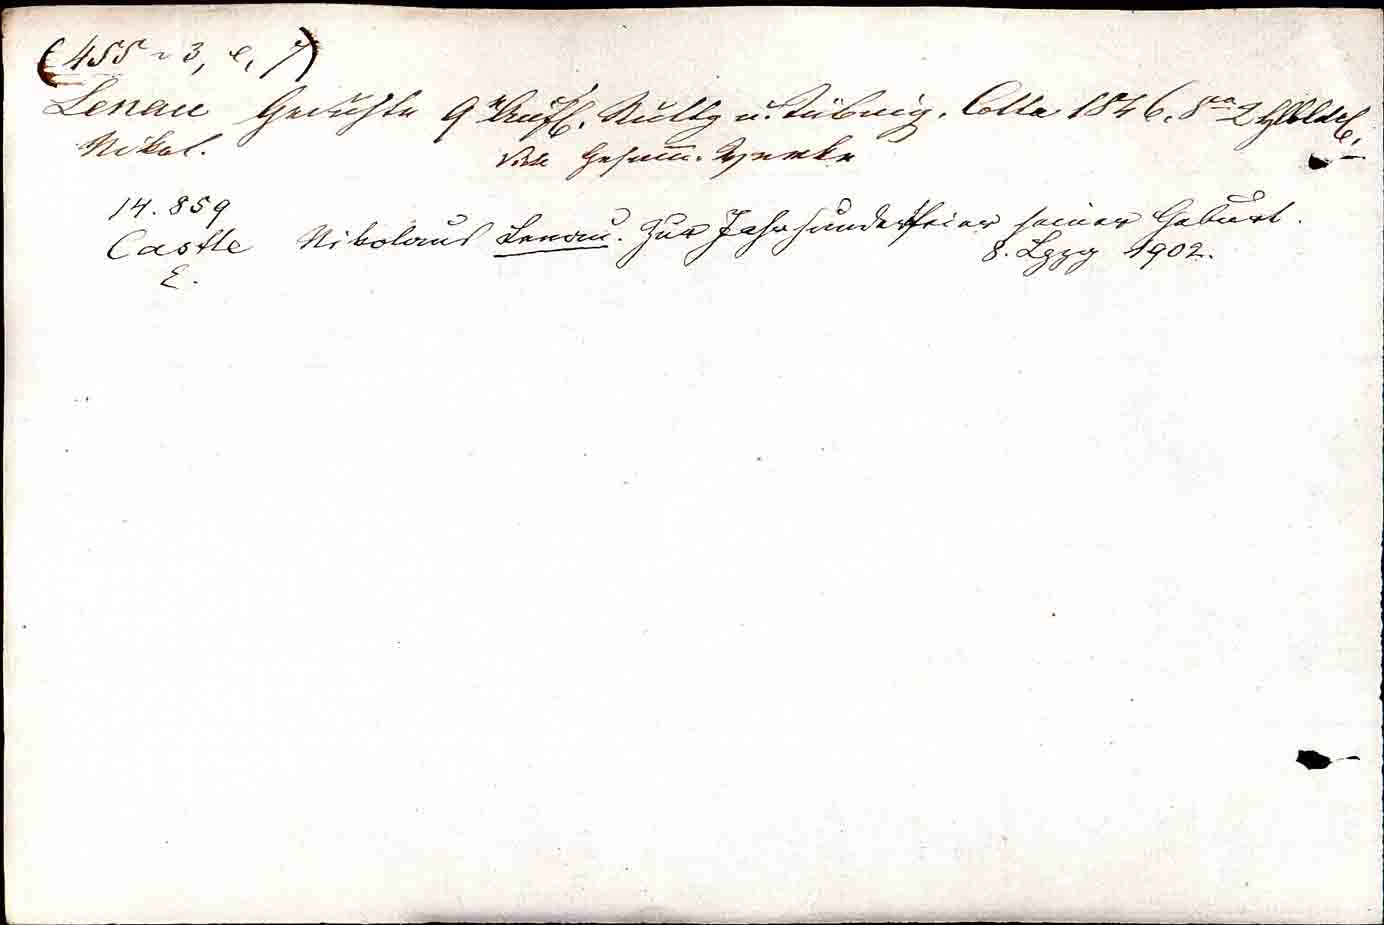 (455 ~ 3, e, 7)
Lenau Gedichte 9te Aufl. Stuttg. u. Tübing. Cotta 1846. 8vo 2
Nikol. Gesamm. Werke
14.859
Castle Nikolaus Lenau. Zur Jahrhundertfeier seiner Geburt.
E. 8. Lpzg 1902.